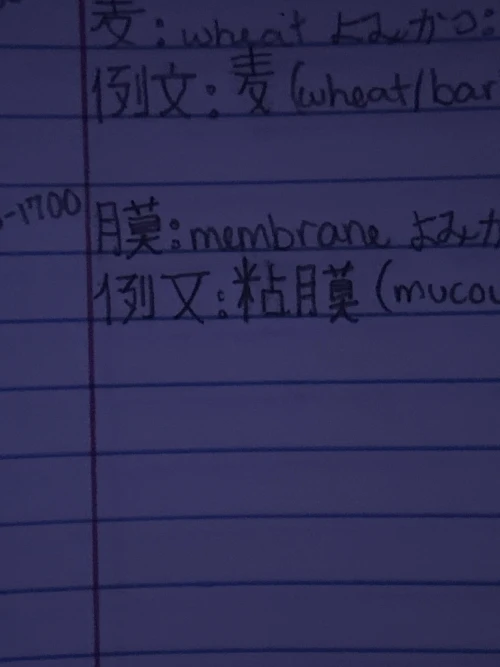 麦: wheat よみかつ:
例文: 麦 (wheat/bar
-1700
膜: membrane よみか
例文: 粘膜 (mucou